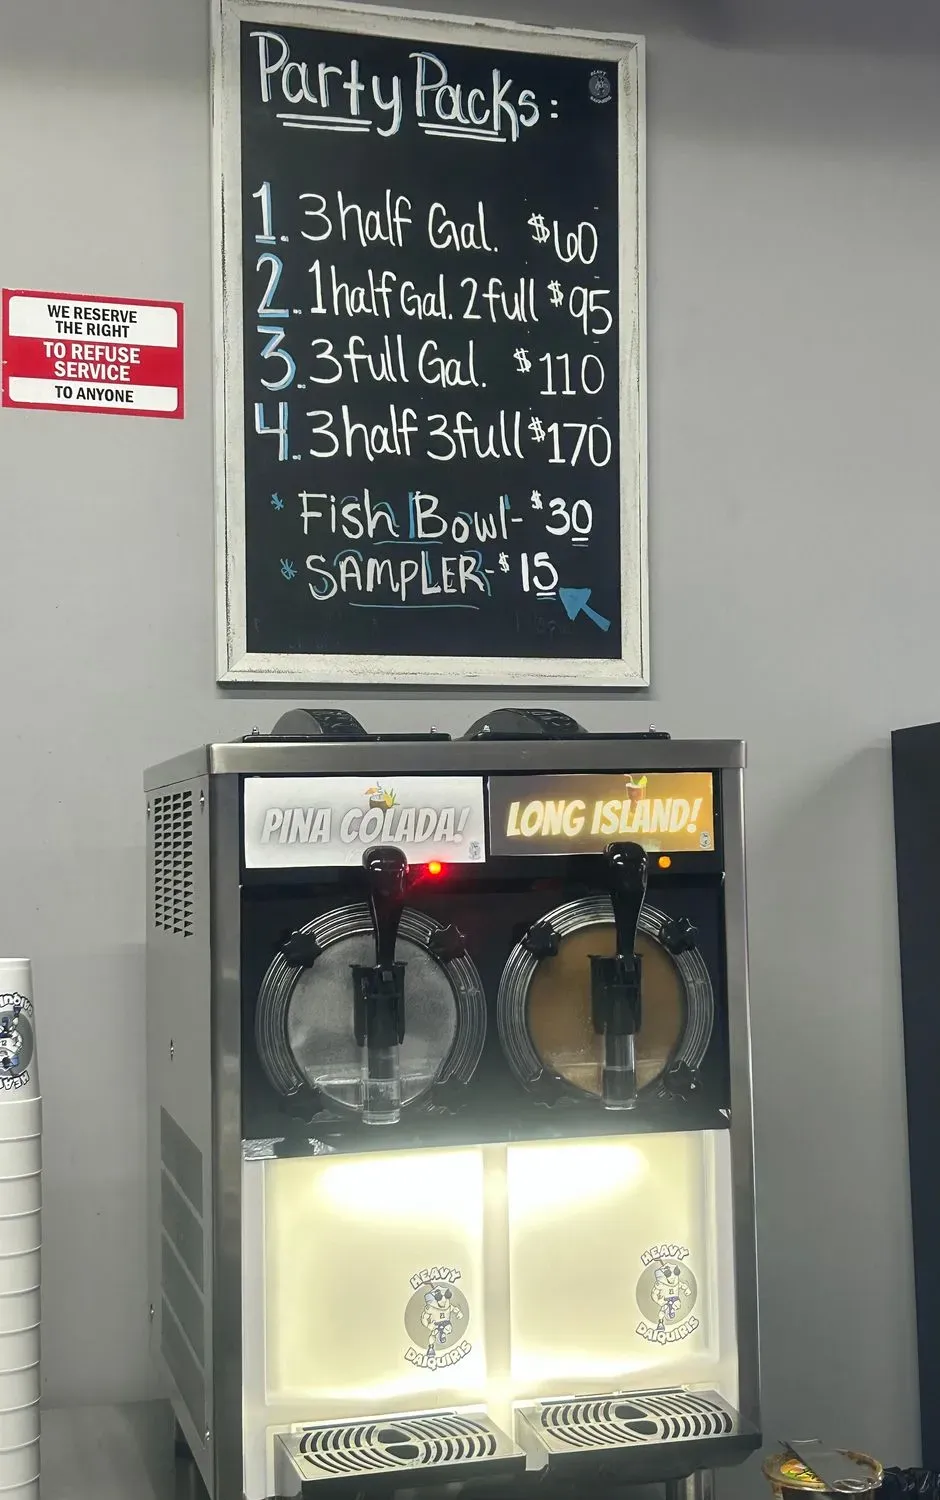 Party Packs:
HEAVY
DAIQUIRIS
1. 3 half Gal. $60
2. 1 half Gal. 2 full $95
3. 3 full Gal. $110
4. 3 half 3 full $170
* Fish Bowl - $30
* SAMPLER - $15
WE RESERVE
THE RIGHT
TO REFUSE
SERVICE
TO ANYONE
PINA COLADA!
LONG ISLAND!
HEAVY
DAIQUIRIS
HEAVY
DAIQUIRIS